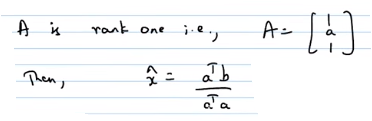 A is rank one i.e., A = [ | a | ]
Then, x̂ = aᵀb / aᵀa